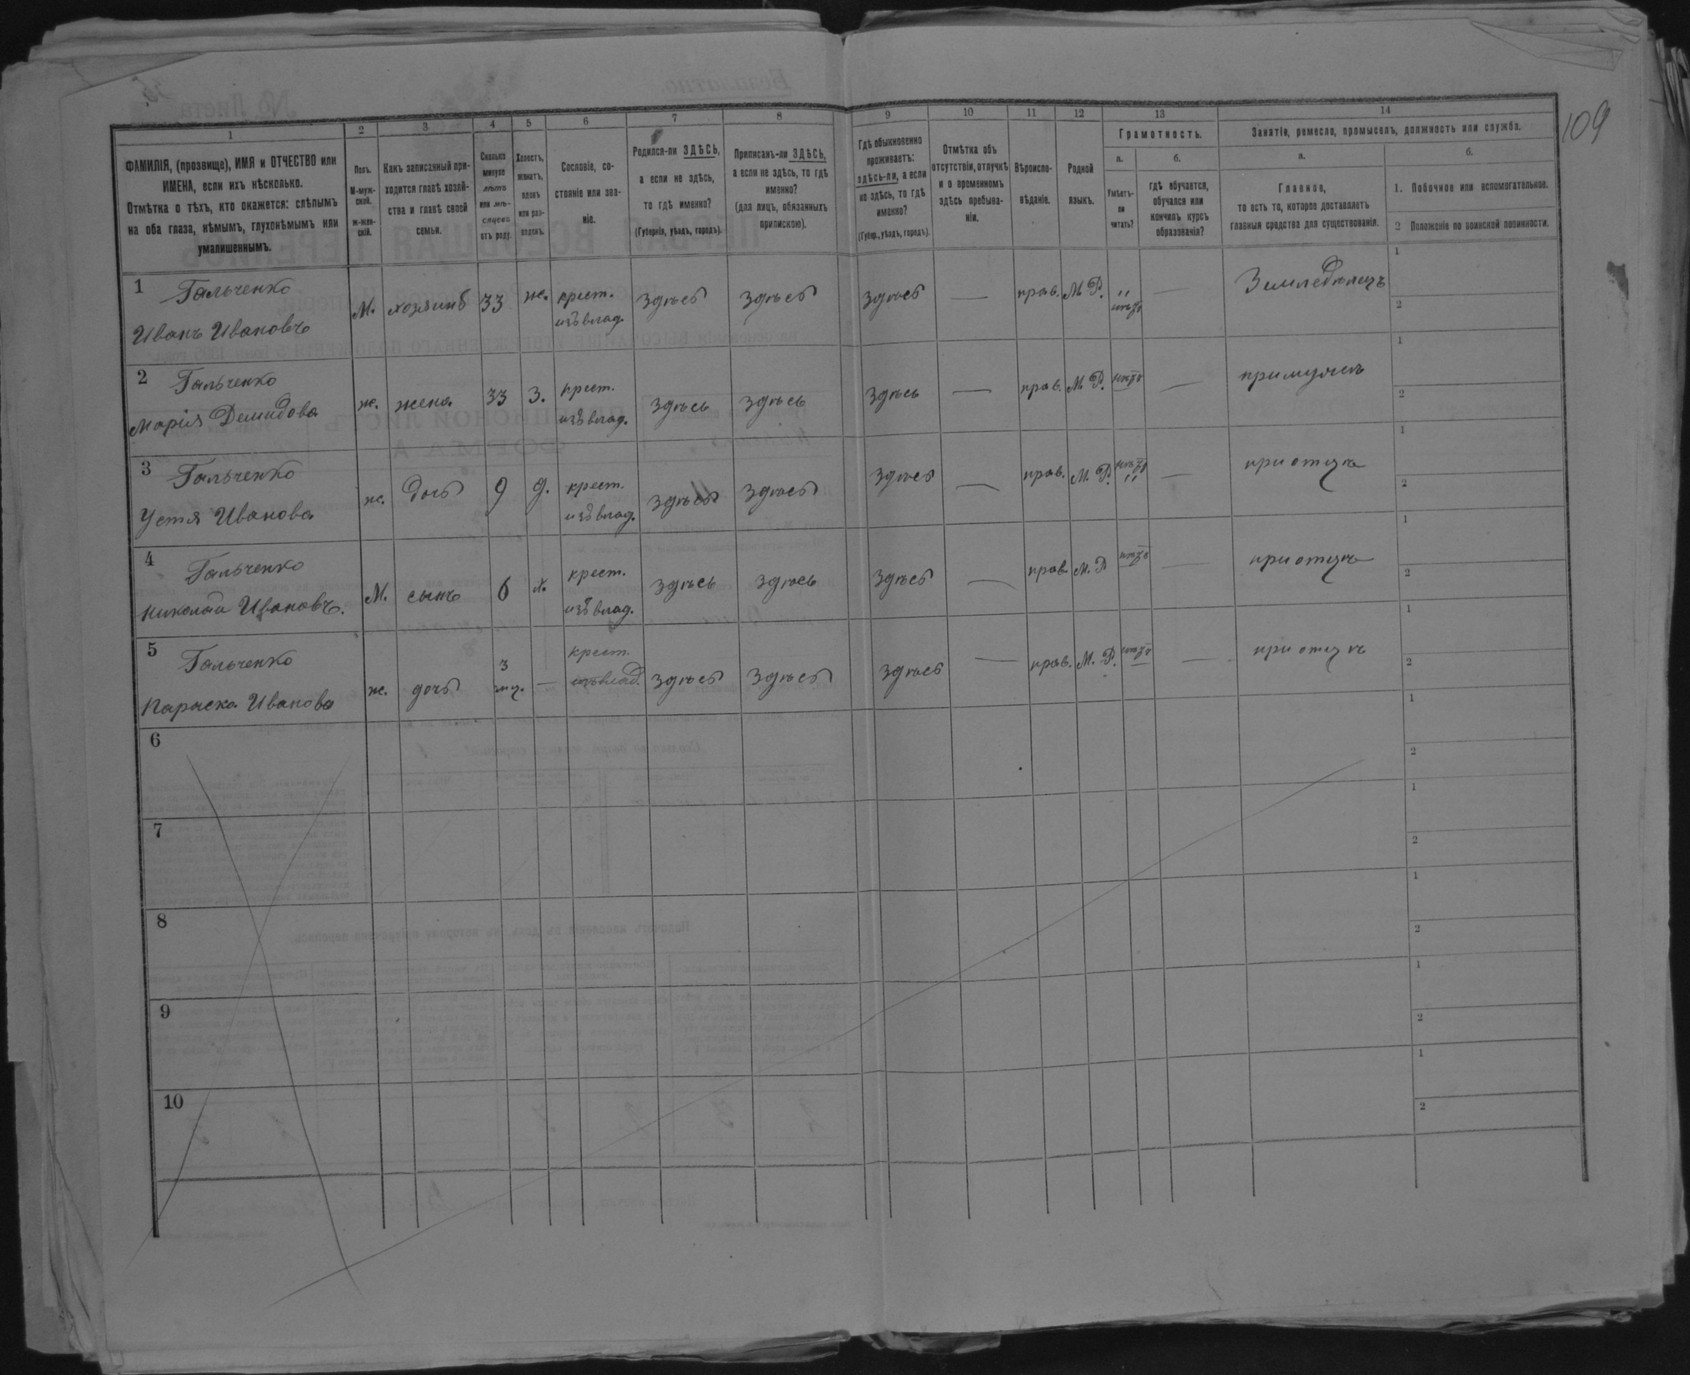 109
1 2 3 4 5 6 7 8 9 10 11 12 13 14
ФАМИЛІЯ, (прозвище), ИМЯ и ОТЧЕСТВО или
ИМЕНА, если ихъ нѣсколько.
Отмѣтка о тѣхъ, кто окажется: слѣпымъ
на оба глаза, нѣмымъ, глухонѣмымъ или
умалишеннымъ.
Полъ.
М-муж-
ской.
ж-жен-
скій.
Какъ записанный при-
ходится главѣ хозяй-
ства и главѣ своей
семьи.
Сколько
минуло
лѣтъ
или мѣ-
сяцевъ
отъ роду.
Холостъ,
женатъ,
вдовъ
или раз-
веденъ.
Сословіе, со-
стояніе или зва-
ніе.
Родился-ли ЗДѢСЬ,
а если не здѣсь,
то гдѣ именно?
(Губернія, уѣздъ, городъ).
Приписанъ-ли ЗДѢСЬ,
а если не здѣсь, то гдѣ
именно?
(для лицъ, обязанныхъ
припискою).
Гдѣ обыкновенно
проживаетъ:
здѣсь-ли, а если
не здѣсь, то гдѣ
именно?
(Губер., уѣздъ, городъ).
Отмѣтка объ
отсутствіи, отлучкѣ
и о временномъ
здѣсь пребыва-
ніи.
Вѣроиспо-
вѣданіе.
Родной
языкъ.
Грамотность.
а.
Умѣетъ-
ли
читать?
б.
гдѣ обучается,
обучался или
кончилъ курсъ
образованія?
Занятіе, ремесло, промыселъ, должность или служба.
а.
Главное,
то есть то, которое доставляетъ
главныя средства для существованія.
б.
1. Побочное или вспомогательное.
2 Положеніе по воинской повинности.
1 Гальченко
Иванъ Ивановъ
М. хозяинъ 33 ж. крест.
изъ влад.
здѣсь здѣсь здѣсь — прав. М. Р. нѣтъ — Земледѣлецъ
1
2
2 Гальченко
Марія Демидова
ж. жена 33 З. крест.
изъ влад.
здѣсь здѣсь здѣсь — прав. М. Р. нѣтъ — при мужѣ
1
2
3 Гальченко
Устя Иванова
ж. дочь 9 д. крест.
изъ влад.
здѣсь здѣсь здѣсь — прав. М. Р. нѣтъ — при отцѣ
1
2
4 Гальченко
Николай Ивановъ.
М. сынъ 6 х. крест.
изъ влад.
здѣсь здѣсь здѣсь — прав. М. Р нѣтъ — при отцѣ
1
2
5 Гальченко
Параска Иванова
ж. дочь 3
— крест.
изъ влад.
здѣсь здѣсь здѣсь — прав. М. Р. нѣтъ — при отцѣ
1
2
6
1
2
7
1
2
8
1
2
9
1
2
10
1
2